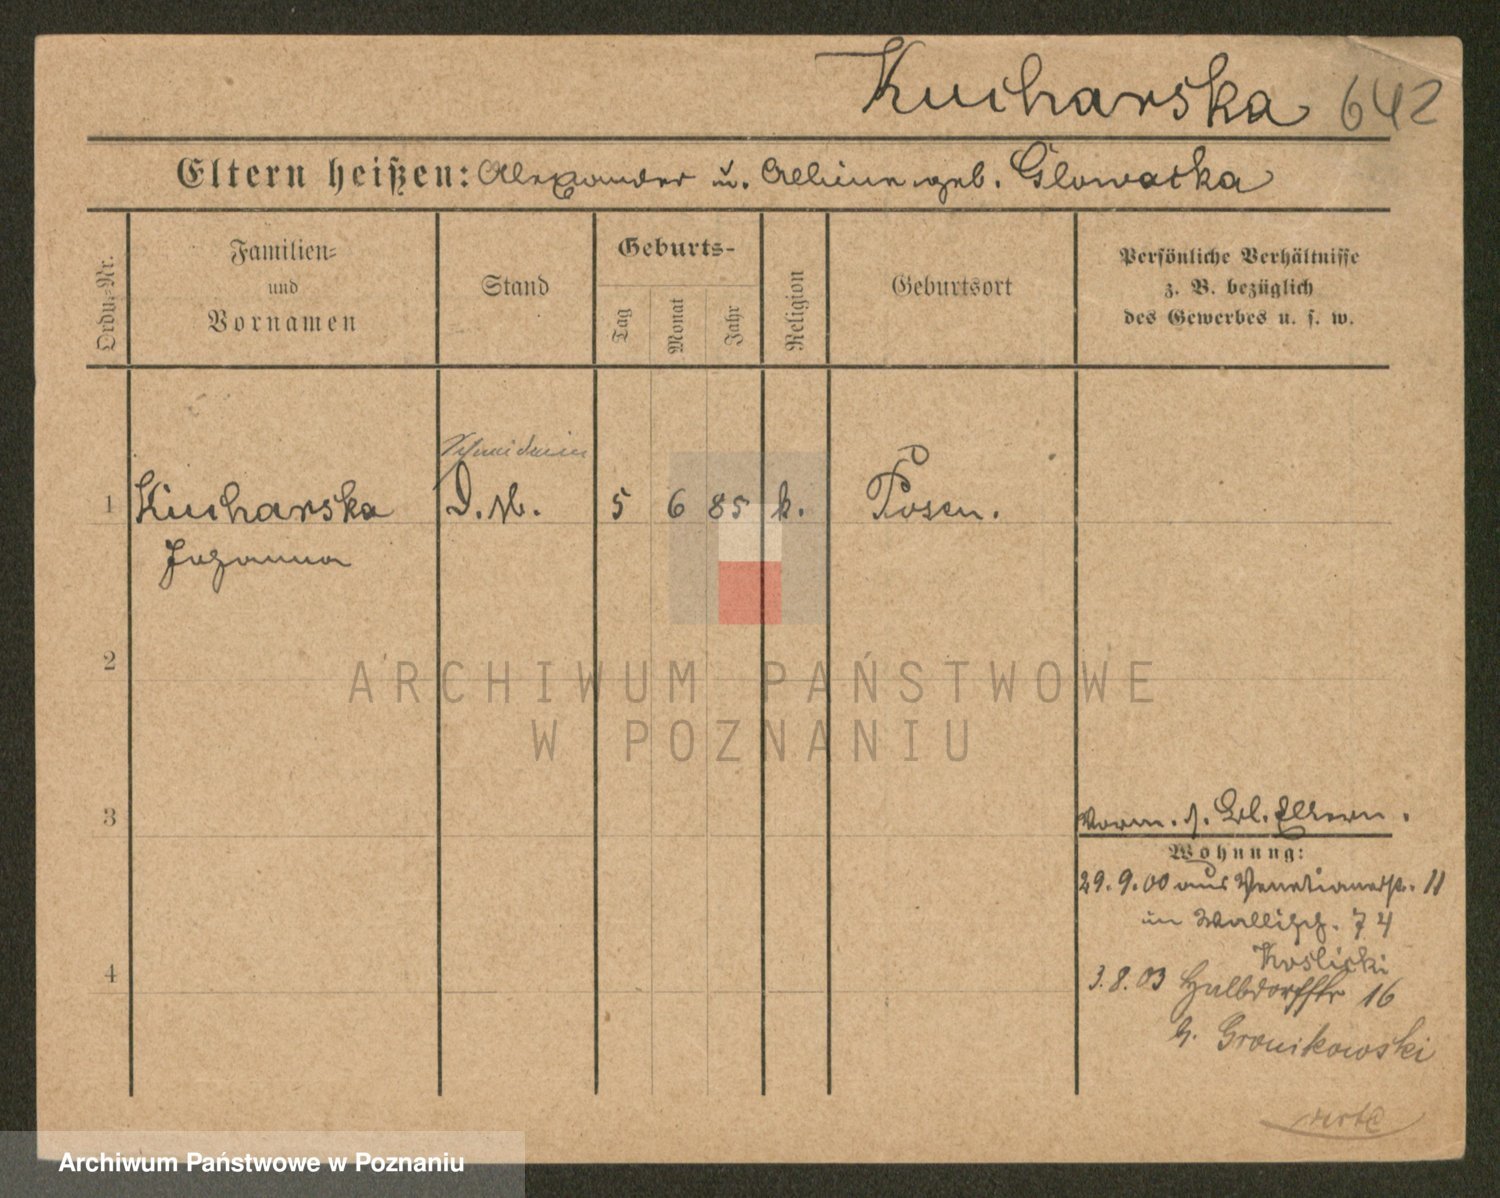 Kucharska 642
Eltern heißen: Alexander u. Albine geb. Glowacka
Ordn.-Nr.
Familien-
und
Vornamen
Stand
Geburts-
Tag
Monat
Jahr
Religion
Geburtsort
Persönliche Verhältnisse
z. B. bezüglich
des Gewerbes u. s. w.
Schneiderin
1 Kucharska D. M. 5 6 85 k. Posen.
Johanna
2
ARCHIWUM PAŃSTWOWE
W POZNANIU
3
Vorm. s. Bl. Eltern.
Wohnung:
29.9.00 aus Venetianerstr. 11
in Wallisch. 74
Koslicki
4
3.8.03 Halbdorffstr 16
b. Gronikowski
verte
Archiwum Państwowe w Poznaniu